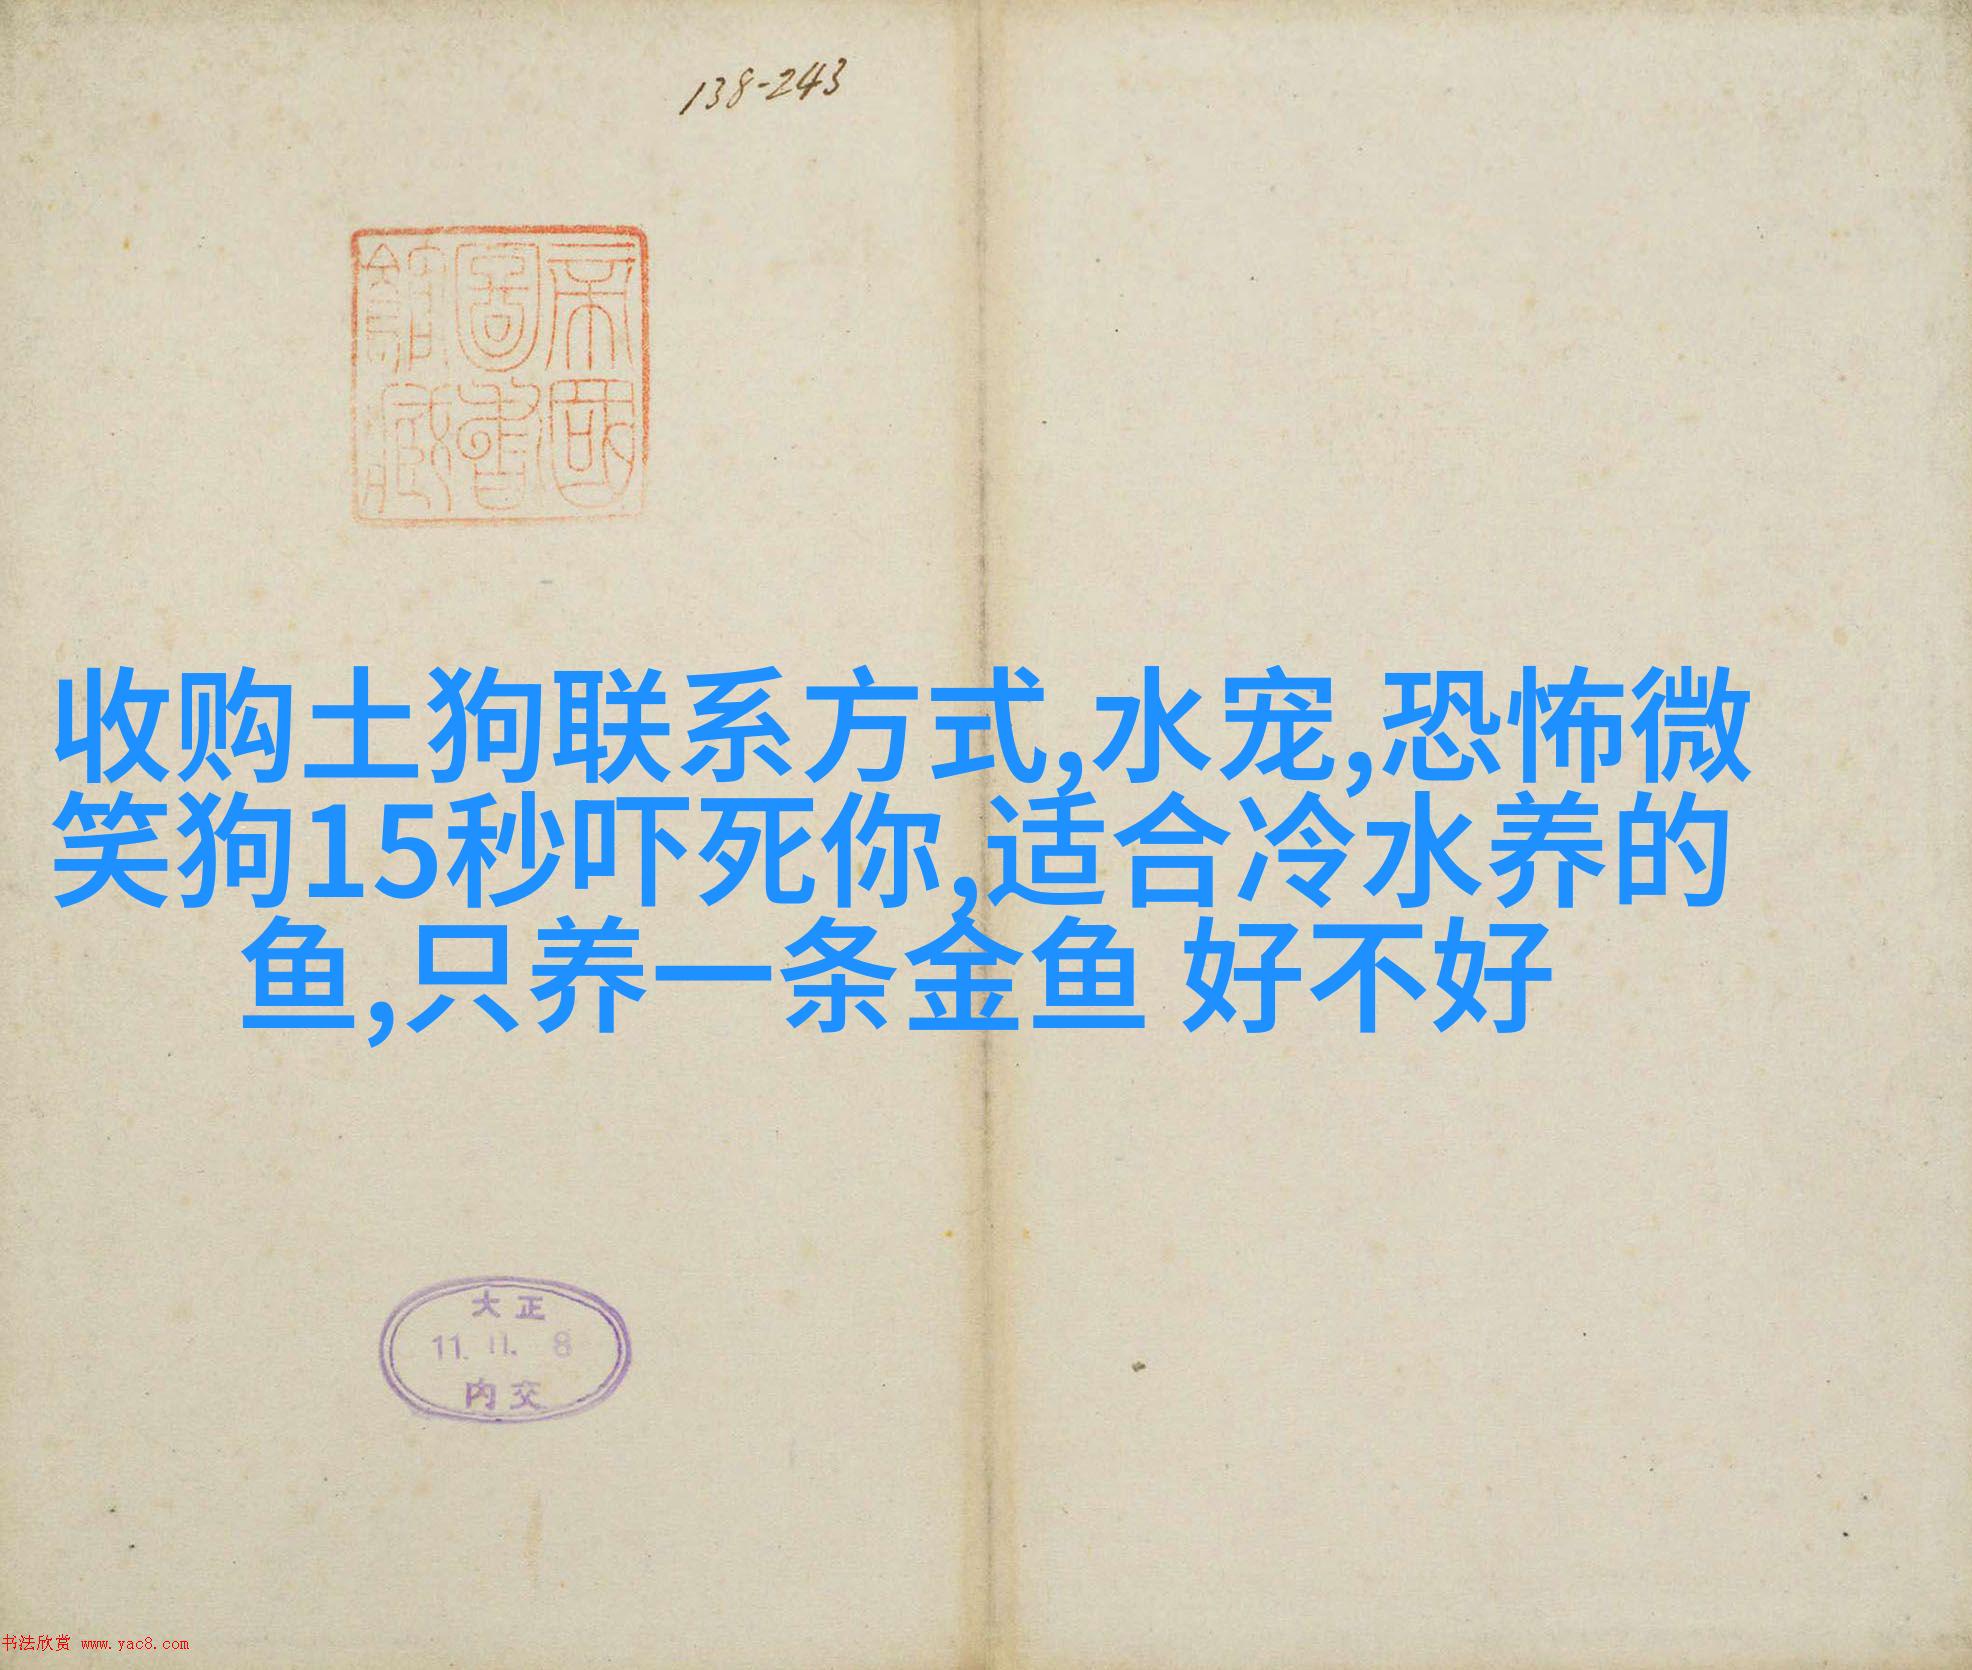 138-243
帝國
圖書
館藏
收购土狗联系方式,水宠,恐怖微
笑狗15秒吓死你,适合冷水养的
鱼,只养一条金鱼 好不好
大正
11. 11. 8
内交
书法欣赏 www.yac8.com